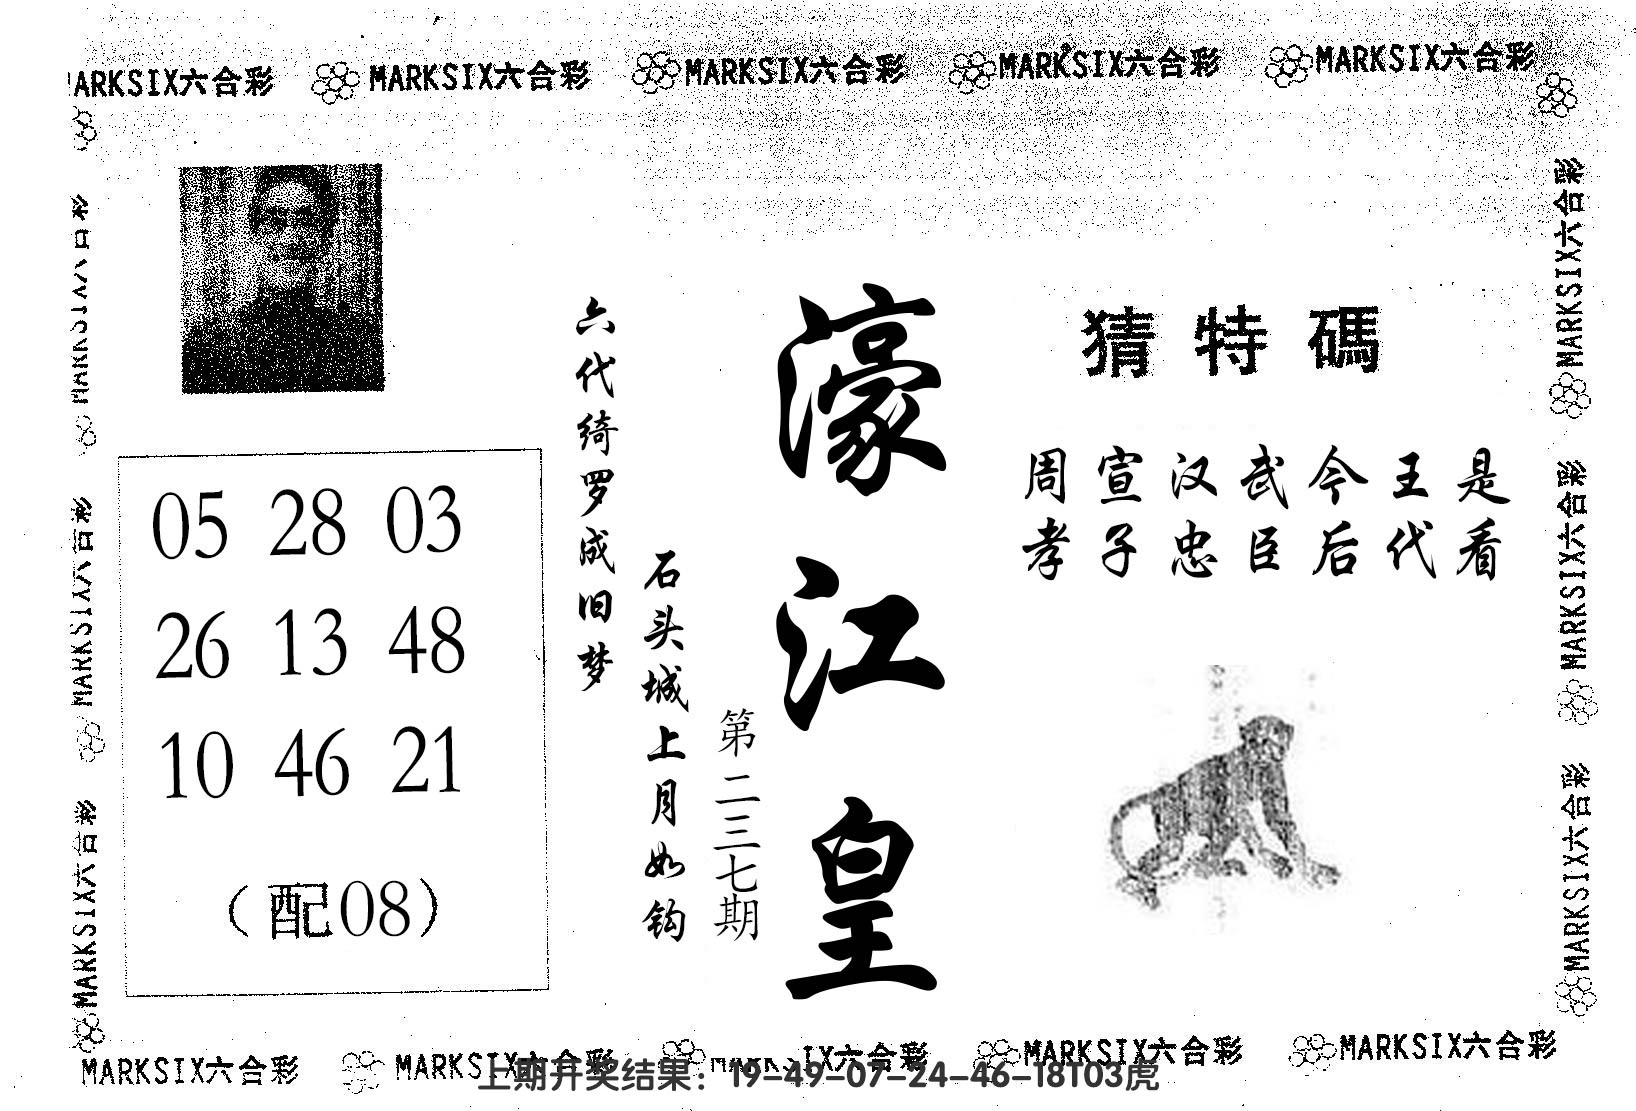 MARKSIX六合彩 MARKSIX六合彩 MARKSIX六合彩 MARKSIX六合彩
猜特碼
周宣汉武今王是
孝子忠臣后代看
濠江皇
第二三七期
六代绮罗成旧梦
石头城上月如钩
05 28 03
26 13 48
10 46 21
（配08）
MARKSIX六合彩
MARKSIX六合彩
MARKSIX六合彩
MARKSIX六合彩
MARKSIX六合彩
MARKSIX六合彩 MARKSIX六合彩 MARKSIX六合彩 MARKSIX六合彩
上期开奖结果：19-49-07-24-46-18T03虎